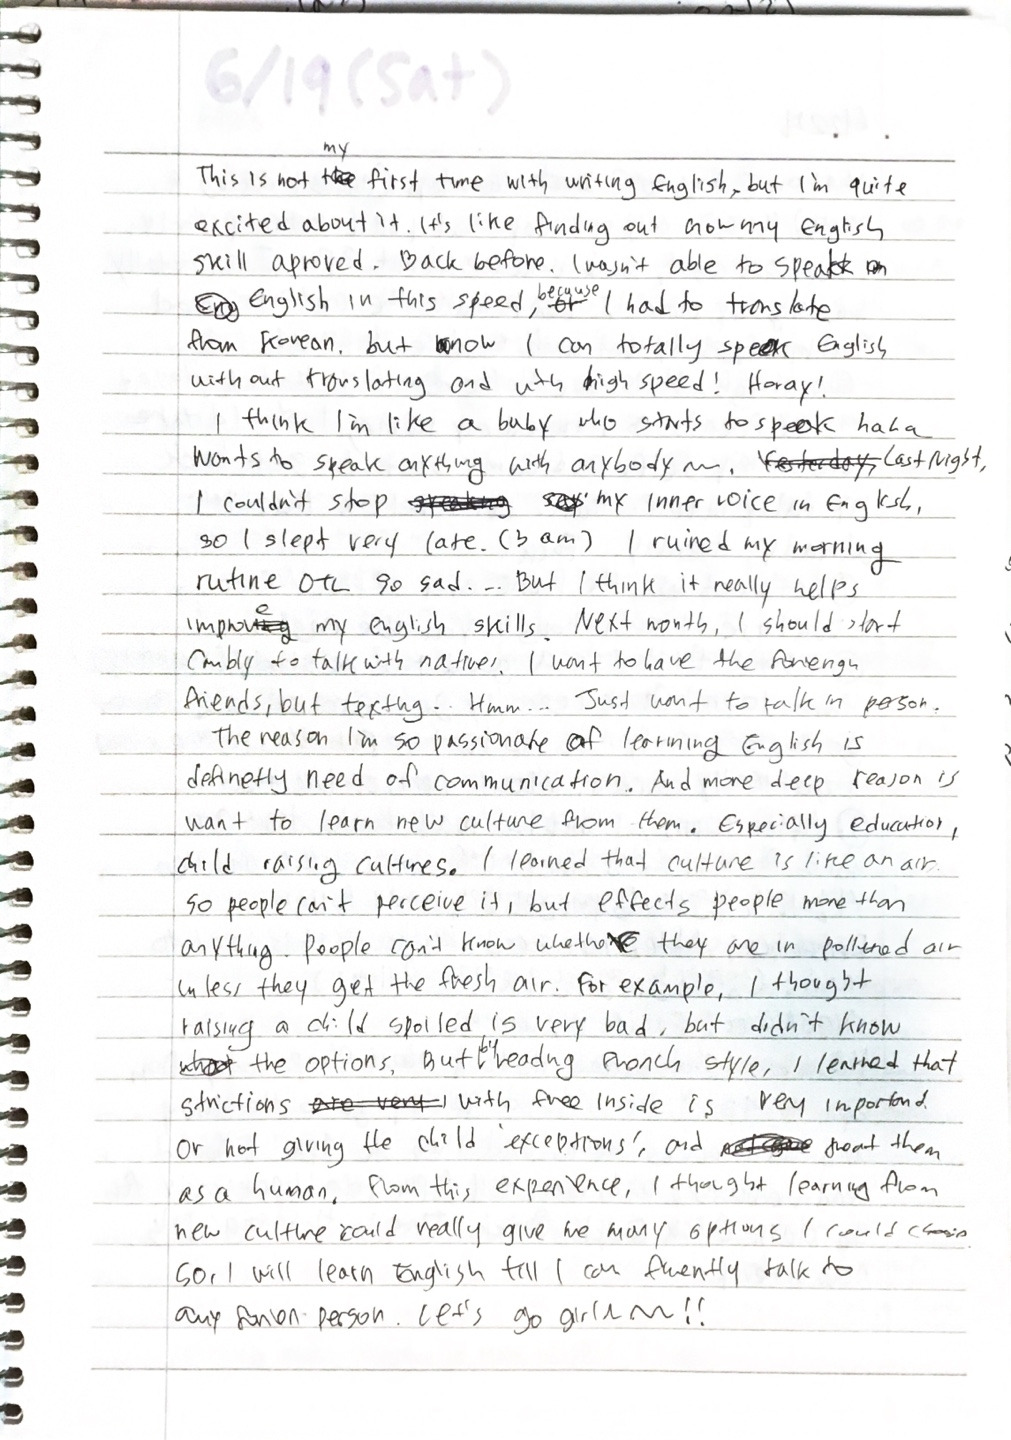 6/19 (Sat)
my
This is not the first time with writing English, but I'm quite
excited about it. It's like finding out how my English
skill aproved. Back before. I wasn't able to speak in
Eng English in this speed, because I had to translate
from Korean. but now I can totally speak English
without translating and with high speed! Horay!
I think I'm like a baby who starts to speak haha
Wants to speak anything with anybody ~. Yesterday, Last Night,
I couldn't stop speaking say my inner voice in English,
so I slept very late. (3 am) I ruined my morning
rutine OTL so sad... But I think it really helps
improve my english skills. Next month, I should start
Cambly to talk with natives. I want to have the
friends, but texting.. Hmm... Just want to talk in person.
The reason I'm so passionate of learning English is
definetly need of communication. And more deep reason is
want to learn new culture from them. Especially education,
child raising cultures. I learned that culture is like an air.
so people can't perceive it, but effects people more than
anything. People can't know whether they are in air
unless they get the fresh air. For example, I thought
raising a child spoiled is very bad, but didn't know
what the options. But by reading French style, I learned that
strictions are very with free inside is very
Or not giving the child 'exceptions', and treat them
as a human. From this experience, I thought learning from
new culture could really give me many options I could
So, I will learn English till I can fluently talk to
any person. Let's go girl ~~!!